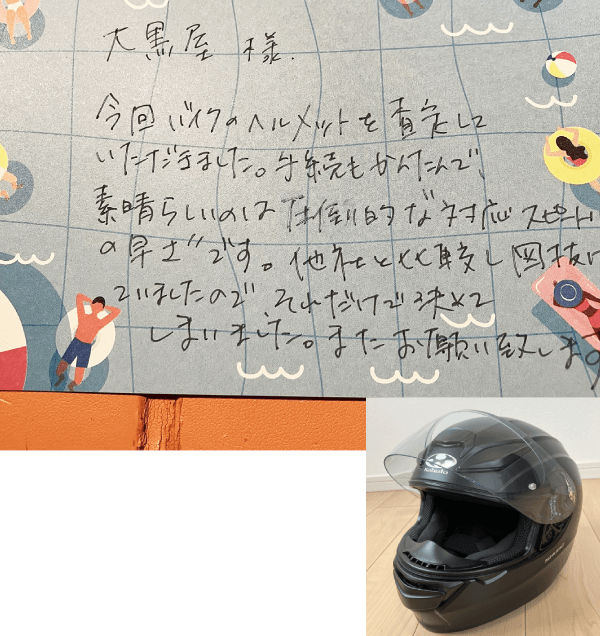 大黒屋 様.
今回バイクのヘルメットを査定して
いただきました。手続もかんたんで、
素晴らしいのは圧倒的な対応スピード
の早さです。他社と比較し図抜け
ていましたので、それだけで決めて
しまいました。またお願い致します
Kabuto